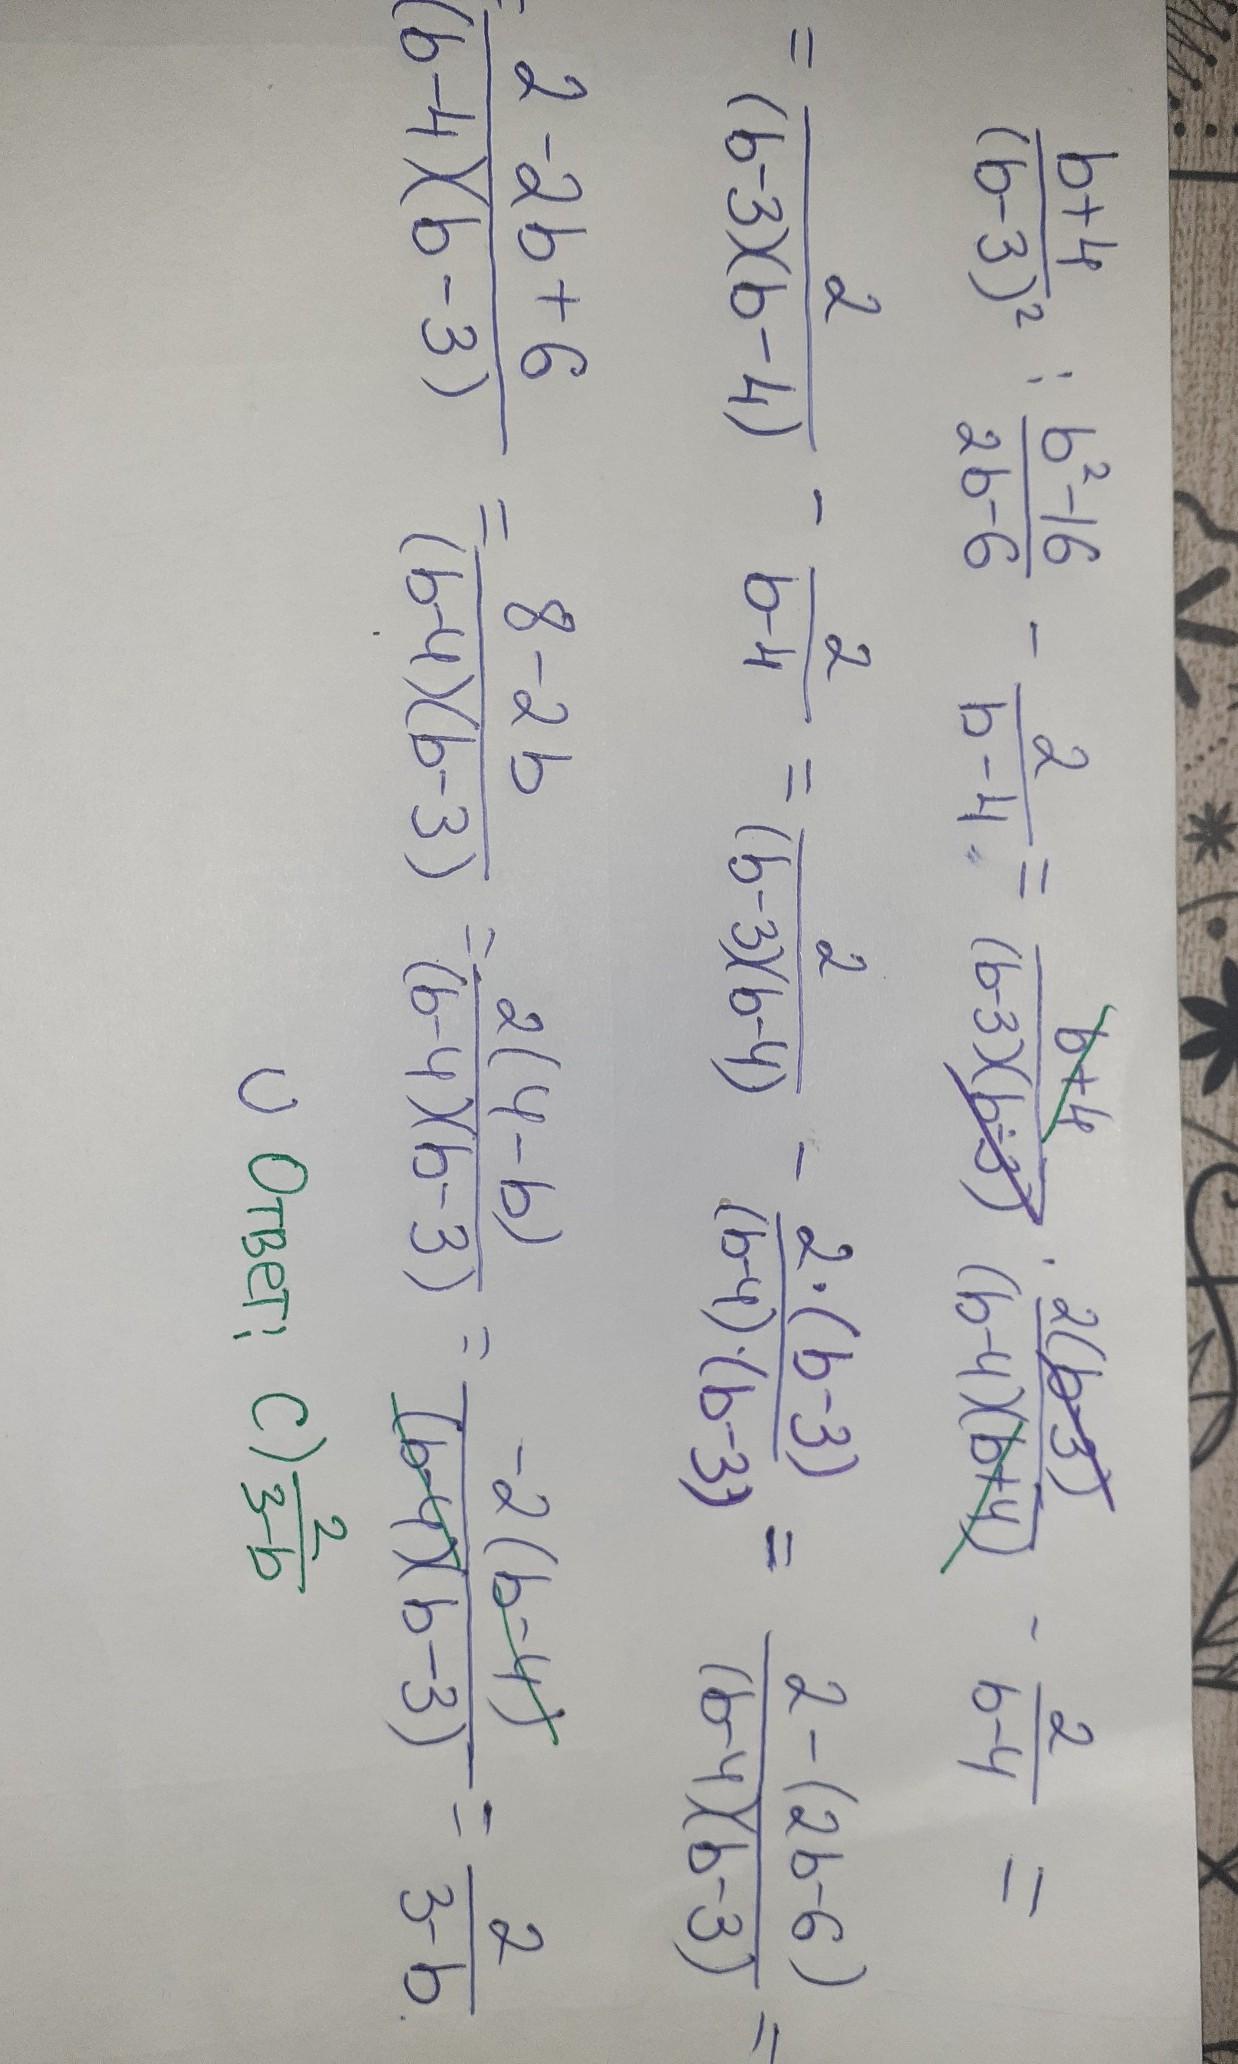 \frac{b+4}{(b-3)^2} : \frac{b^2-16}{2b-6} - \frac{2}{b-4} = \frac{b+4}{(b-3)(b-3)} \cdot \frac{2(b-3)}{(b-4)(b+4)} - \frac{2}{b-4} =
= \frac{2}{(b-3)(b-4)} - \frac{2}{b-4} = \frac{2}{(b-3)(b-4)} - \frac{2 \cdot (b-3)}{(b-4) \cdot (b-3)} = \frac{2-(2b-6)}{(b-4)(b-3)} =
= \frac{2-2b+6}{(b-4)(b-3)} = \frac{8-2b}{(b-4)(b-3)} = \frac{2(4-b)}{(b-4)(b-3)} = \frac{-2(b-4)}{(b-4)(b-3)} = \frac{2}{3-b}.
Ответ: C) \frac{2}{3-b}